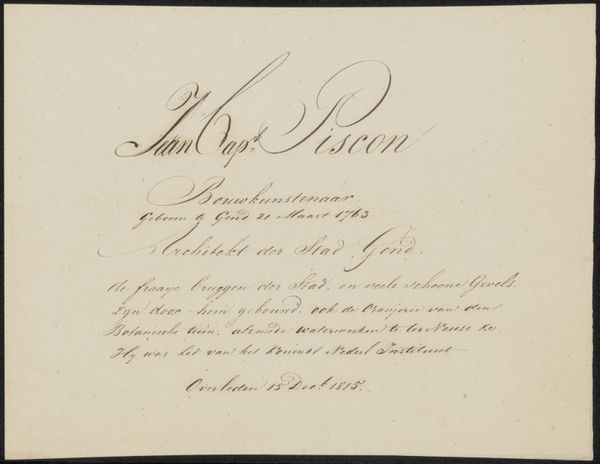 Jean Bapt. Piscon
Bouwkunstenaar.
Geboren te Gend 21 Maart 1763.
Architekt der Stad Gend.
de fraaye bruggen der Stad, en veele schoone Gevels
zijn door hem gebouwd, ook de Oranjerie van den
Botanische tuin, alsmede waterwerken te ter Neuse &c.
Hy was lid van het Konink Nederl Instituut
Overleden 15 Decb. 1815.